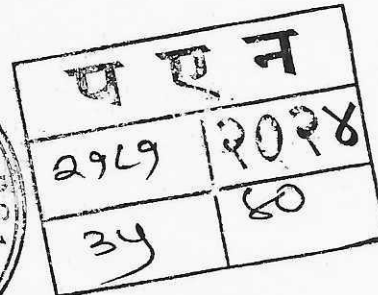 प ए न
२१८१ २०२४
३५ ४०